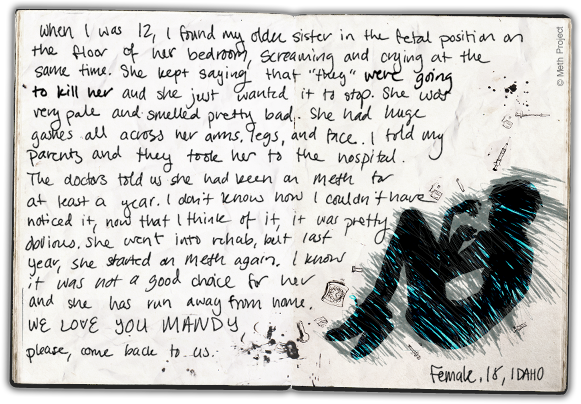 When I was 12, I found my older sister in the fetal position on
the floor of her bedroom, screaming and crying at the
same time. She kept saying that "they" were going
to kill her and she just wanted it to stop. She was
very pale and smelled pretty bad. She had huge
gashes all across her arms, legs, and face. I told my
parents and they took her to the hospital.
The doctors told us she had been on meth for
at least a year. I don't know how I couldn't have
noticed it, now that I think of it, it was pretty
obvious. She went into rehab, but last
year, she started on meth again. I know
it was not a good choice for her
and she has run away from home.
WE LOVE YOU MANDY
please, come back to us.
Female, 18, IDAHO
© Meth Project